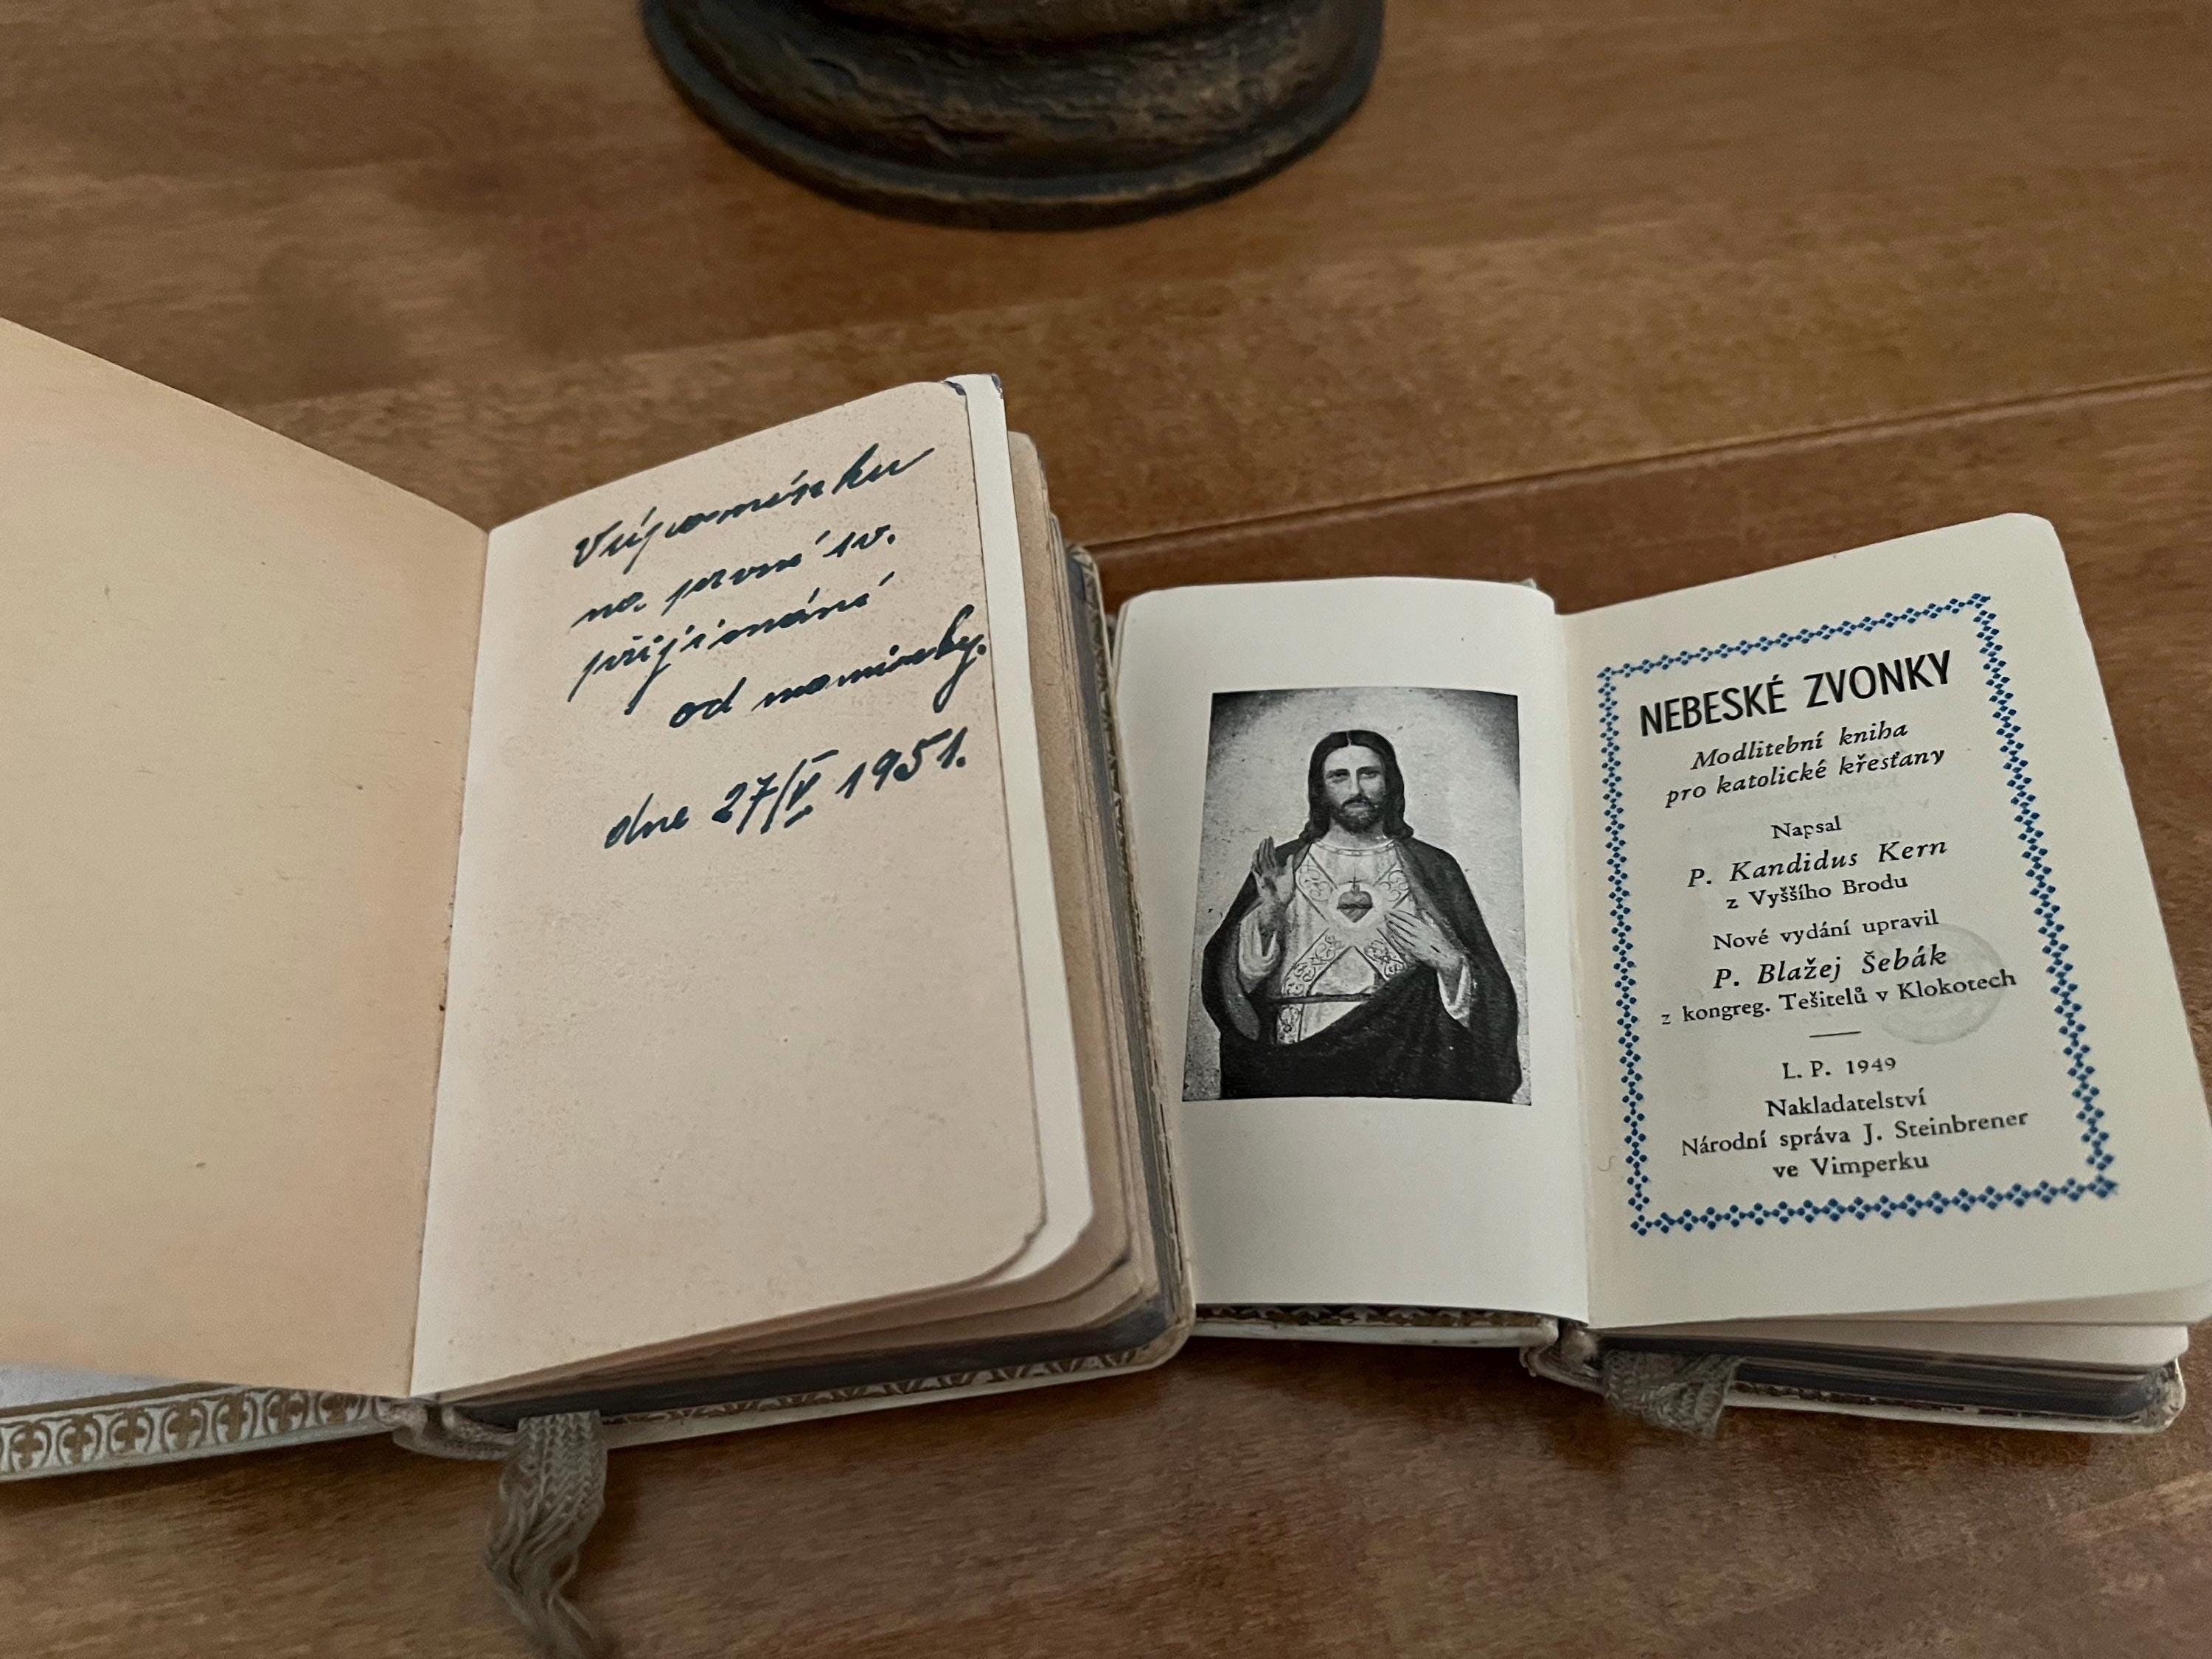 Vzpomínku
na první sv.
přijímání
od maminky.
dne 27/V 1951.
NEBESKÉ ZVONKY
Modlitební kniha
pro katolické křesťany
Napsal
P. Kandidus Kern
z Vyššího Brodu
Nové vydání upravil
P. Blažej Šebák
z kongreg. Tešitelů v Klokotech
L. P. 1949
Nakladatelství
Národní správa J. Steinbrener
ve Vimperku